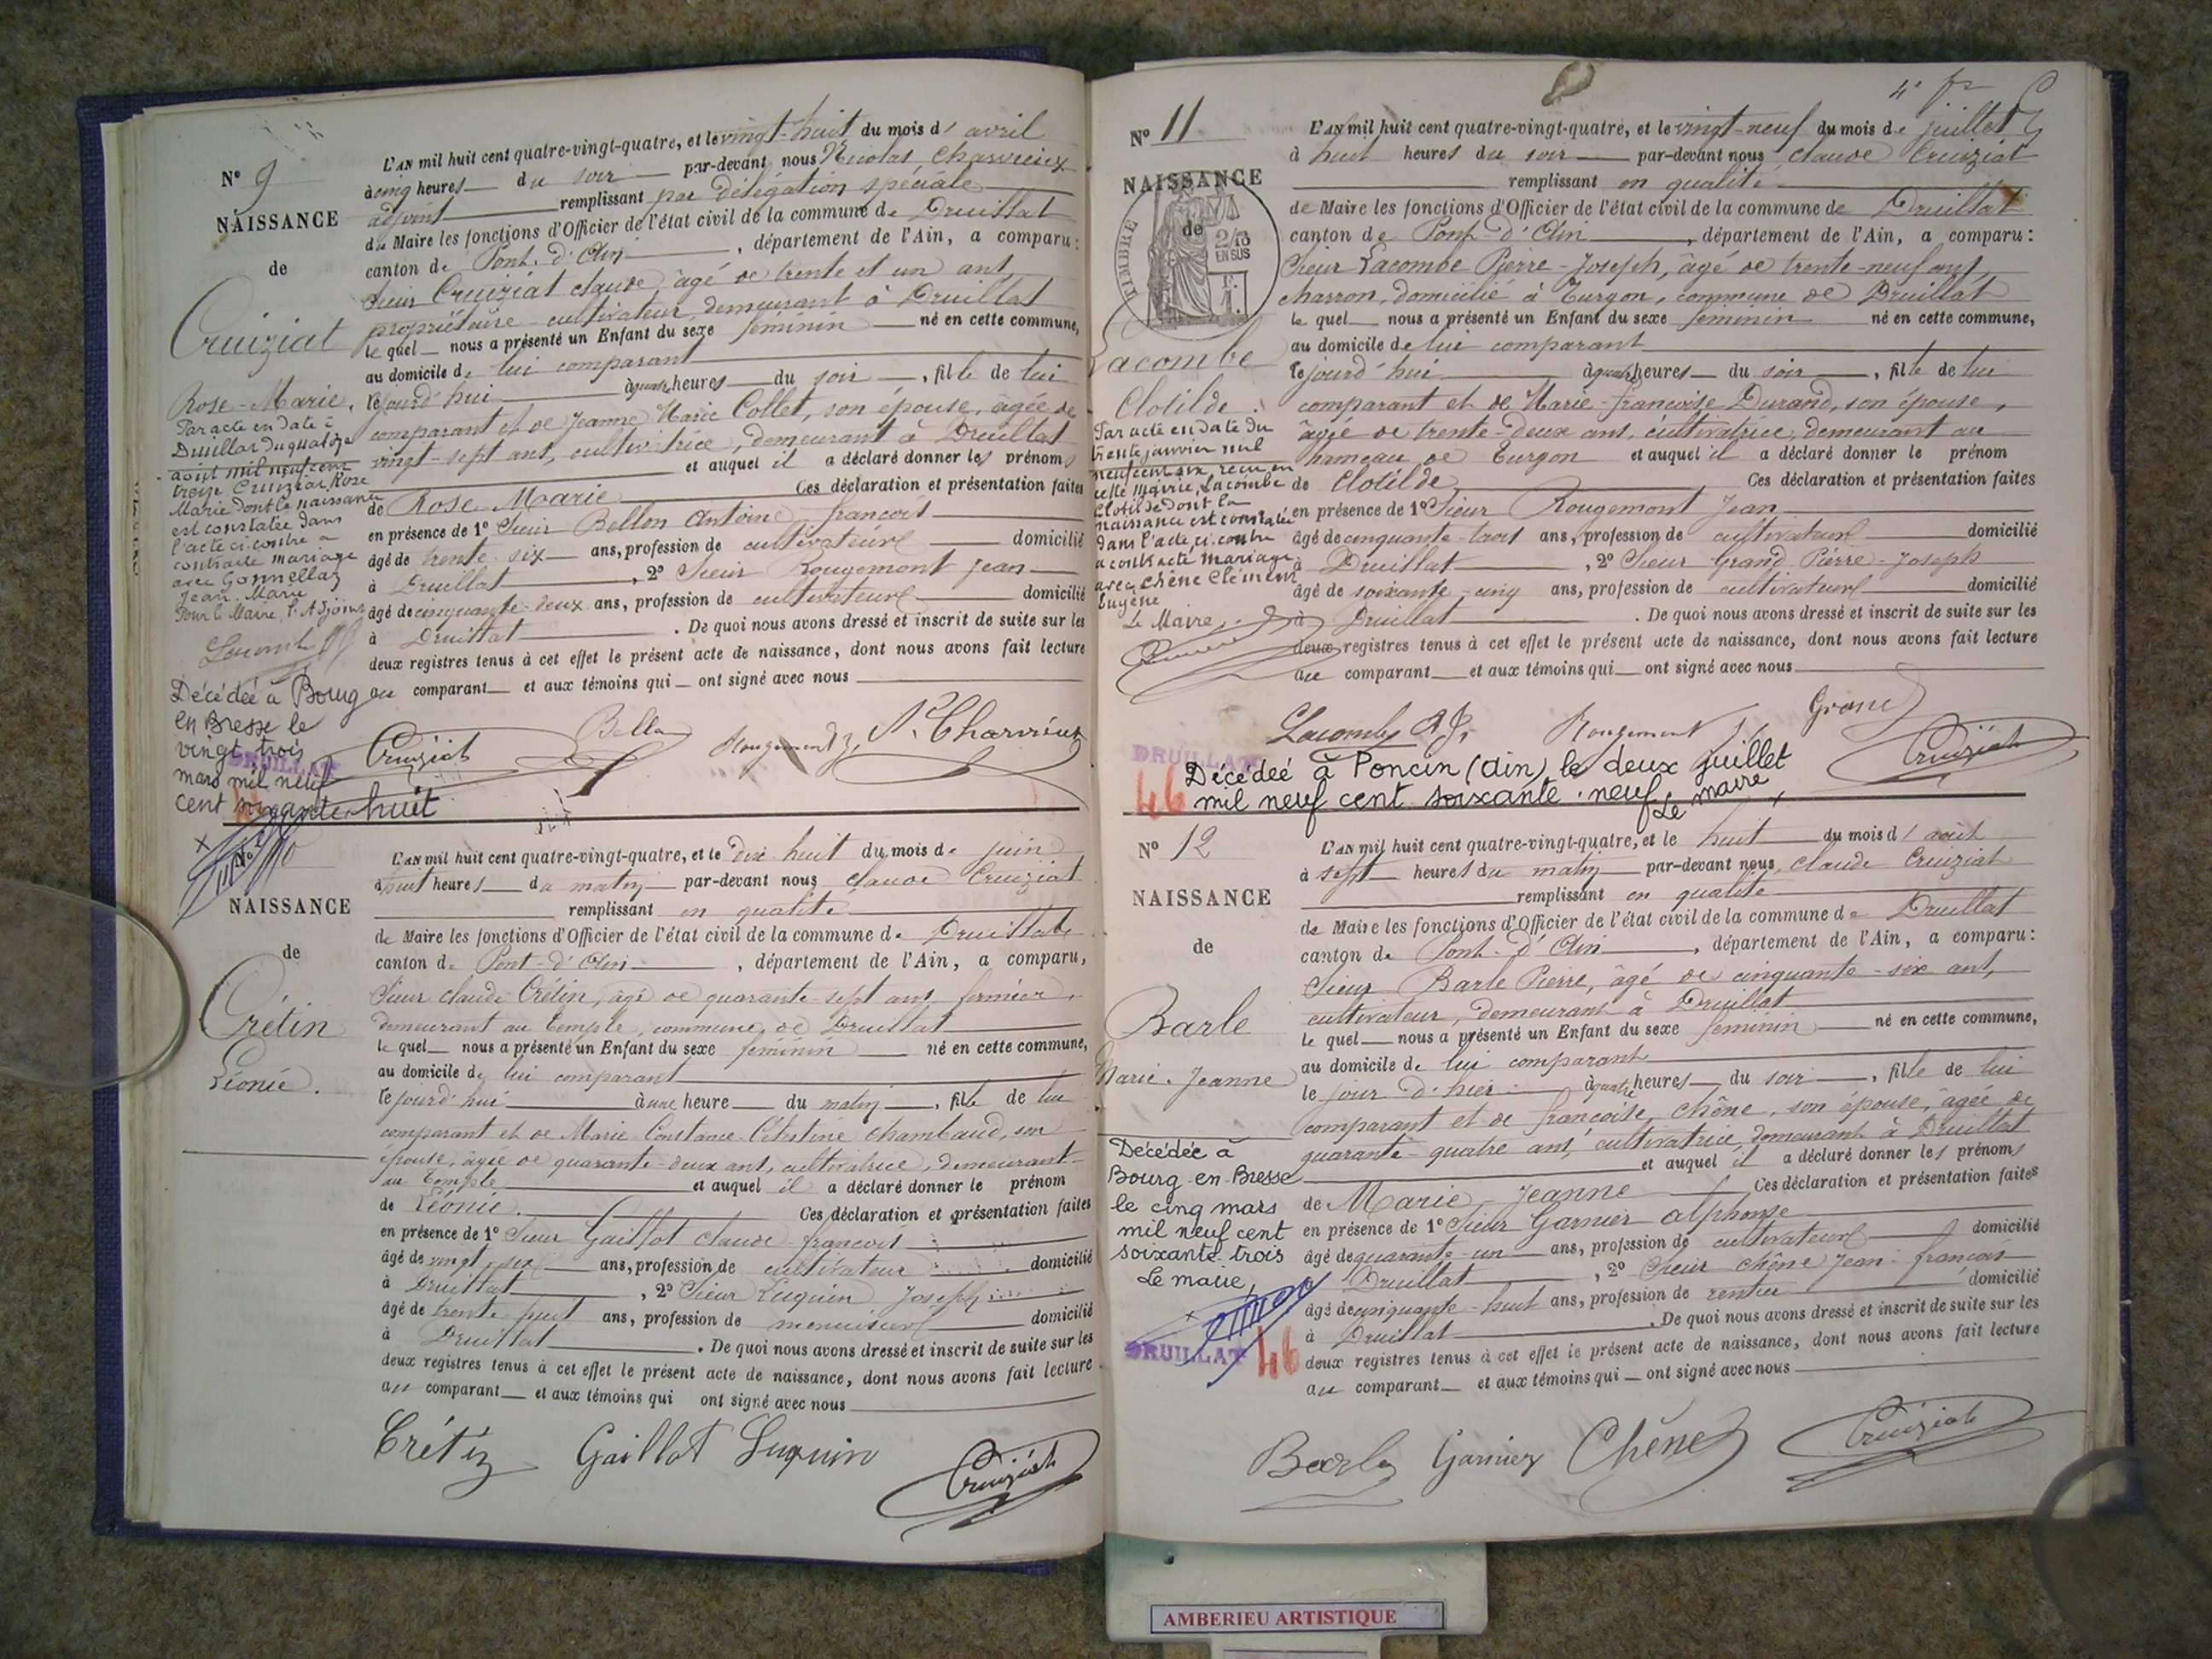 Nº 9
NAISSANCE
de
Cruiziat
Rose-Marie.
Par acte en date à
Druillat du quatorze
août mil neuf cent
treize Cruiziat Rose
Marie dont la naissance
est constatée dans
l'acte ci-contre a
contracté mariage
avec Gonnellaz
Jean-Marie
Pour le Maire, l'Adjoint
Décédée à Bourg
en Bresse le
vingt trois
mars mil neuf
cent soixante huit
DRUILLAT
L'AN mil huit cent quatre-vingt-quatre, et le vingt-huit du mois d'avril
à cinq heures du soir par-devant nous Nicolas Charvieux
adjoint remplissant par délégation spéciale
du Maire les fonctions d'Officier de l'état civil de la commune de Druillat
canton de Pont-d'Ain, département de l'Ain, a comparu:
Sieur Cruiziat claude, âgé de trente et un ans,
propriétaire-cultivateur, demeurant à Druillat
le quel nous a présenté un Enfant du sexe féminin né en cette commune,
au domicile de lui comparant
lejourd'hui à quatre heures du soir, fille de lui
comparant et de Jeanne Marie Collet, son épouse, âgée de
vingt-sept ans, cultivatrice, demeurant à Druillat
et auquel il a déclaré donner les prénoms
de Rose Marie Ces déclaration et présentation faites
en présence de 1º Sieur Bellon Antoine-françois
âgé de trente-six ans, profession de cultivateur domicilié
à Druillat, 2º Sieur Rougemont Jean
âgé de cinquante-deux ans, profession de cultivateur domicilié
à Druillat. De quoi nous avons dressé et inscrit de suite sur les
deux registres tenus à cet effet le présent acte de naissance, dont nous avons fait lecture
au comparant et aux témoins qui ont signé avec nous
Cruiziat Bellon Rougemont N. Charvieux
NAISSANCE
de
Crétin
Léonie.
L'AN mil huit cent quatre-vingt-quatre, et le dix huit du mois de juin
à huit heures du matin par-devant nous claude Cruiziat
remplissant en qualité
de Maire les fonctions d'Officier de l'état civil de la commune de Druillat
canton de Pont-d'Ain, département de l'Ain, a comparu,
Sieur claude Crétin, âgé de quarante-sept ans, fermier,
demeurant au Temple, commune de Druillat
le quel nous a présenté un Enfant du sexe féminin né en cette commune,
au domicile de lui comparant
lejourd'hui à une heure du matin, fille de lui
comparant et de Marie Constance Célestine Chambaud, son
épouse, âgée de quarante-deux ans, cultivatrice, demeurant
au Temple et auquel il a déclaré donner le prénom
de Léonie. Ces déclaration et présentation faites
en présence de 1º Sieur Gaillot claude-françois
âgé de vingt-six ans, profession de cultivateur domicilié
à Druillat, 2º Sieur Luquin Joseph
âgé de trente-huit ans, profession de menuisier domicilié
à Druillat. De quoi nous avons dressé et inscrit de suite sur les
deux registres tenus à cet effet le présent acte de naissance, dont nous avons fait lecture
au comparant et aux témoins qui ont signé avec nous
Crétin Gaillot Luquin
Cruiziat
Nº 11
NAISSANCE
de
TIMBRE
2/10 EN SUS
Lacombe
Clotilde.
Par acte en date du
trente janvier mil
neuf cent six, reçu en
cette Mairie, Lacombe
Clotilde dont la
naissance est constatée
dans l'acte ci-contre
a contracté mariage
avec Chêne Clément
Eugène
Le Maire,
L'AN mil huit cent quatre-vingt-quatre, et le vingt-neuf du mois de juillet
à huit heures du soir par-devant nous claude Cruiziat
remplissant en qualité
de Maire les fonctions d'Officier de l'état civil de la commune de Druillat
canton de Pont-d'Ain, département de l'Ain, a comparu:
Sieur Lacombe Pierre-Joseph, âgé de trente-neuf ans,
charron, domicilié à Turgon, commune de Druillat
le quel nous a présenté un Enfant du sexe féminin né en cette commune,
au domicile de lui comparant
lejourd'hui à quatre heures du soir, fille de lui
comparant et de Marie-francoise Durand, son épouse,
âgée de trente-deux ans, cultivatrice, demeurant au
hameau de Turgon et auquel il a déclaré donner le prénom
de Clotilde Ces déclaration et présentation faites
en présence de 1º Sieur Rougemont Jean
âgé de cinquante-trois ans, profession de cultivateur domicilié
à Druillat, 2º Sieur Grand Pierre-Joseph
âgé de soixante-cinq ans, profession de cultivateur domicilié
à Druillat. De quoi nous avons dressé et inscrit de suite sur les
deux registres tenus à cet effet le présent acte de naissance, dont nous avons fait lecture
au comparant et aux témoins qui ont signé avec nous
Lacombe P.J. Rougemont Grand
Cruiziat
DRUILLAT
46
Décédeé à Poncin (Ain) le deux juillet
mil neuf cent soixante-neuf. Le maire,
Nº 12
NAISSANCE
de
Barle
Marie-Jeanne
Décédée à
Bourg-en-Bresse
le cinq mars
mil neuf cent
soixante trois
Le maire,
DRUILLAT
46
L'AN mil huit cent quatre-vingt-quatre, et le huit du mois d'août
à sept heures du matin par-devant nous claude Cruiziat
remplissant en qualité
de Maire les fonctions d'Officier de l'état civil de la commune de Druillat
canton de Pont-d'Ain, département de l'Ain, a comparu:
Sieur Barle Pierre, âgé de cinquante-six ans,
cultivateur, demeurant à Druillat
le quel nous a présenté un Enfant du sexe féminin né en cette commune,
au domicile de lui comparant
le jour d'hier à quatre heures du soir, fille de lui
comparant et de francoise Chêne, son épouse, âgée de
quarante-quatre ans, cultivatrice, demeurant à Druillat
et auquel il a déclaré donner les prénoms
de Marie-Jeanne Ces déclaration et présentation faites
en présence de 1º Sieur Garnier alphonse
âgé de quarante-un ans, profession de cultivateur domicilié
à Druillat, 2º Sieur Chêne Jean-françois
âgé de cinquante-huit ans, profession de rentier domicilié
à Druillat. De quoi nous avons dressé et inscrit de suite sur les
deux registres tenus à cet effet le présent acte de naissance, dont nous avons fait lecture
au comparant et aux témoins qui ont signé avec nous
Barle Garnier Chêne Cruiziat
AMBERIEU ARTISTIQUE